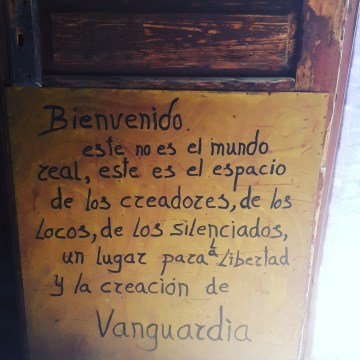 Bienvenido.
este no es el mundo
real, este es el espacio
de los creadores, de los
locos, de los silenciados,
un lugar para la Libertad
y la creación de
Vanguardia